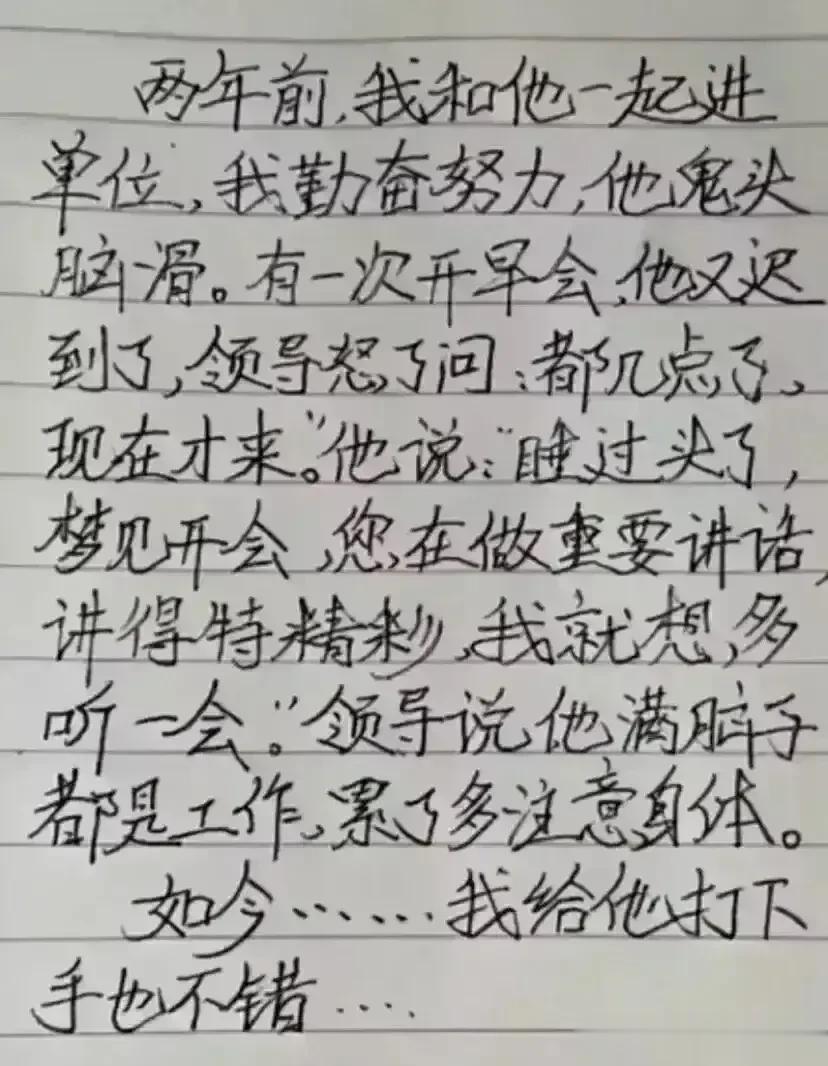 两年前,我和他一起进
单位,我勤奋努力,他鬼头
脑滑。有一次开早会,他又迟
到了,领导怒了问:都几点了,
现在才来。"他说:"睡过头了,
梦见开会,您在做重要讲话,
讲得特精彩,我就想,多
听一会。"领导说,他满脑子
都是工作,累了多注意身体。
如今……我给他打下
手也不错....